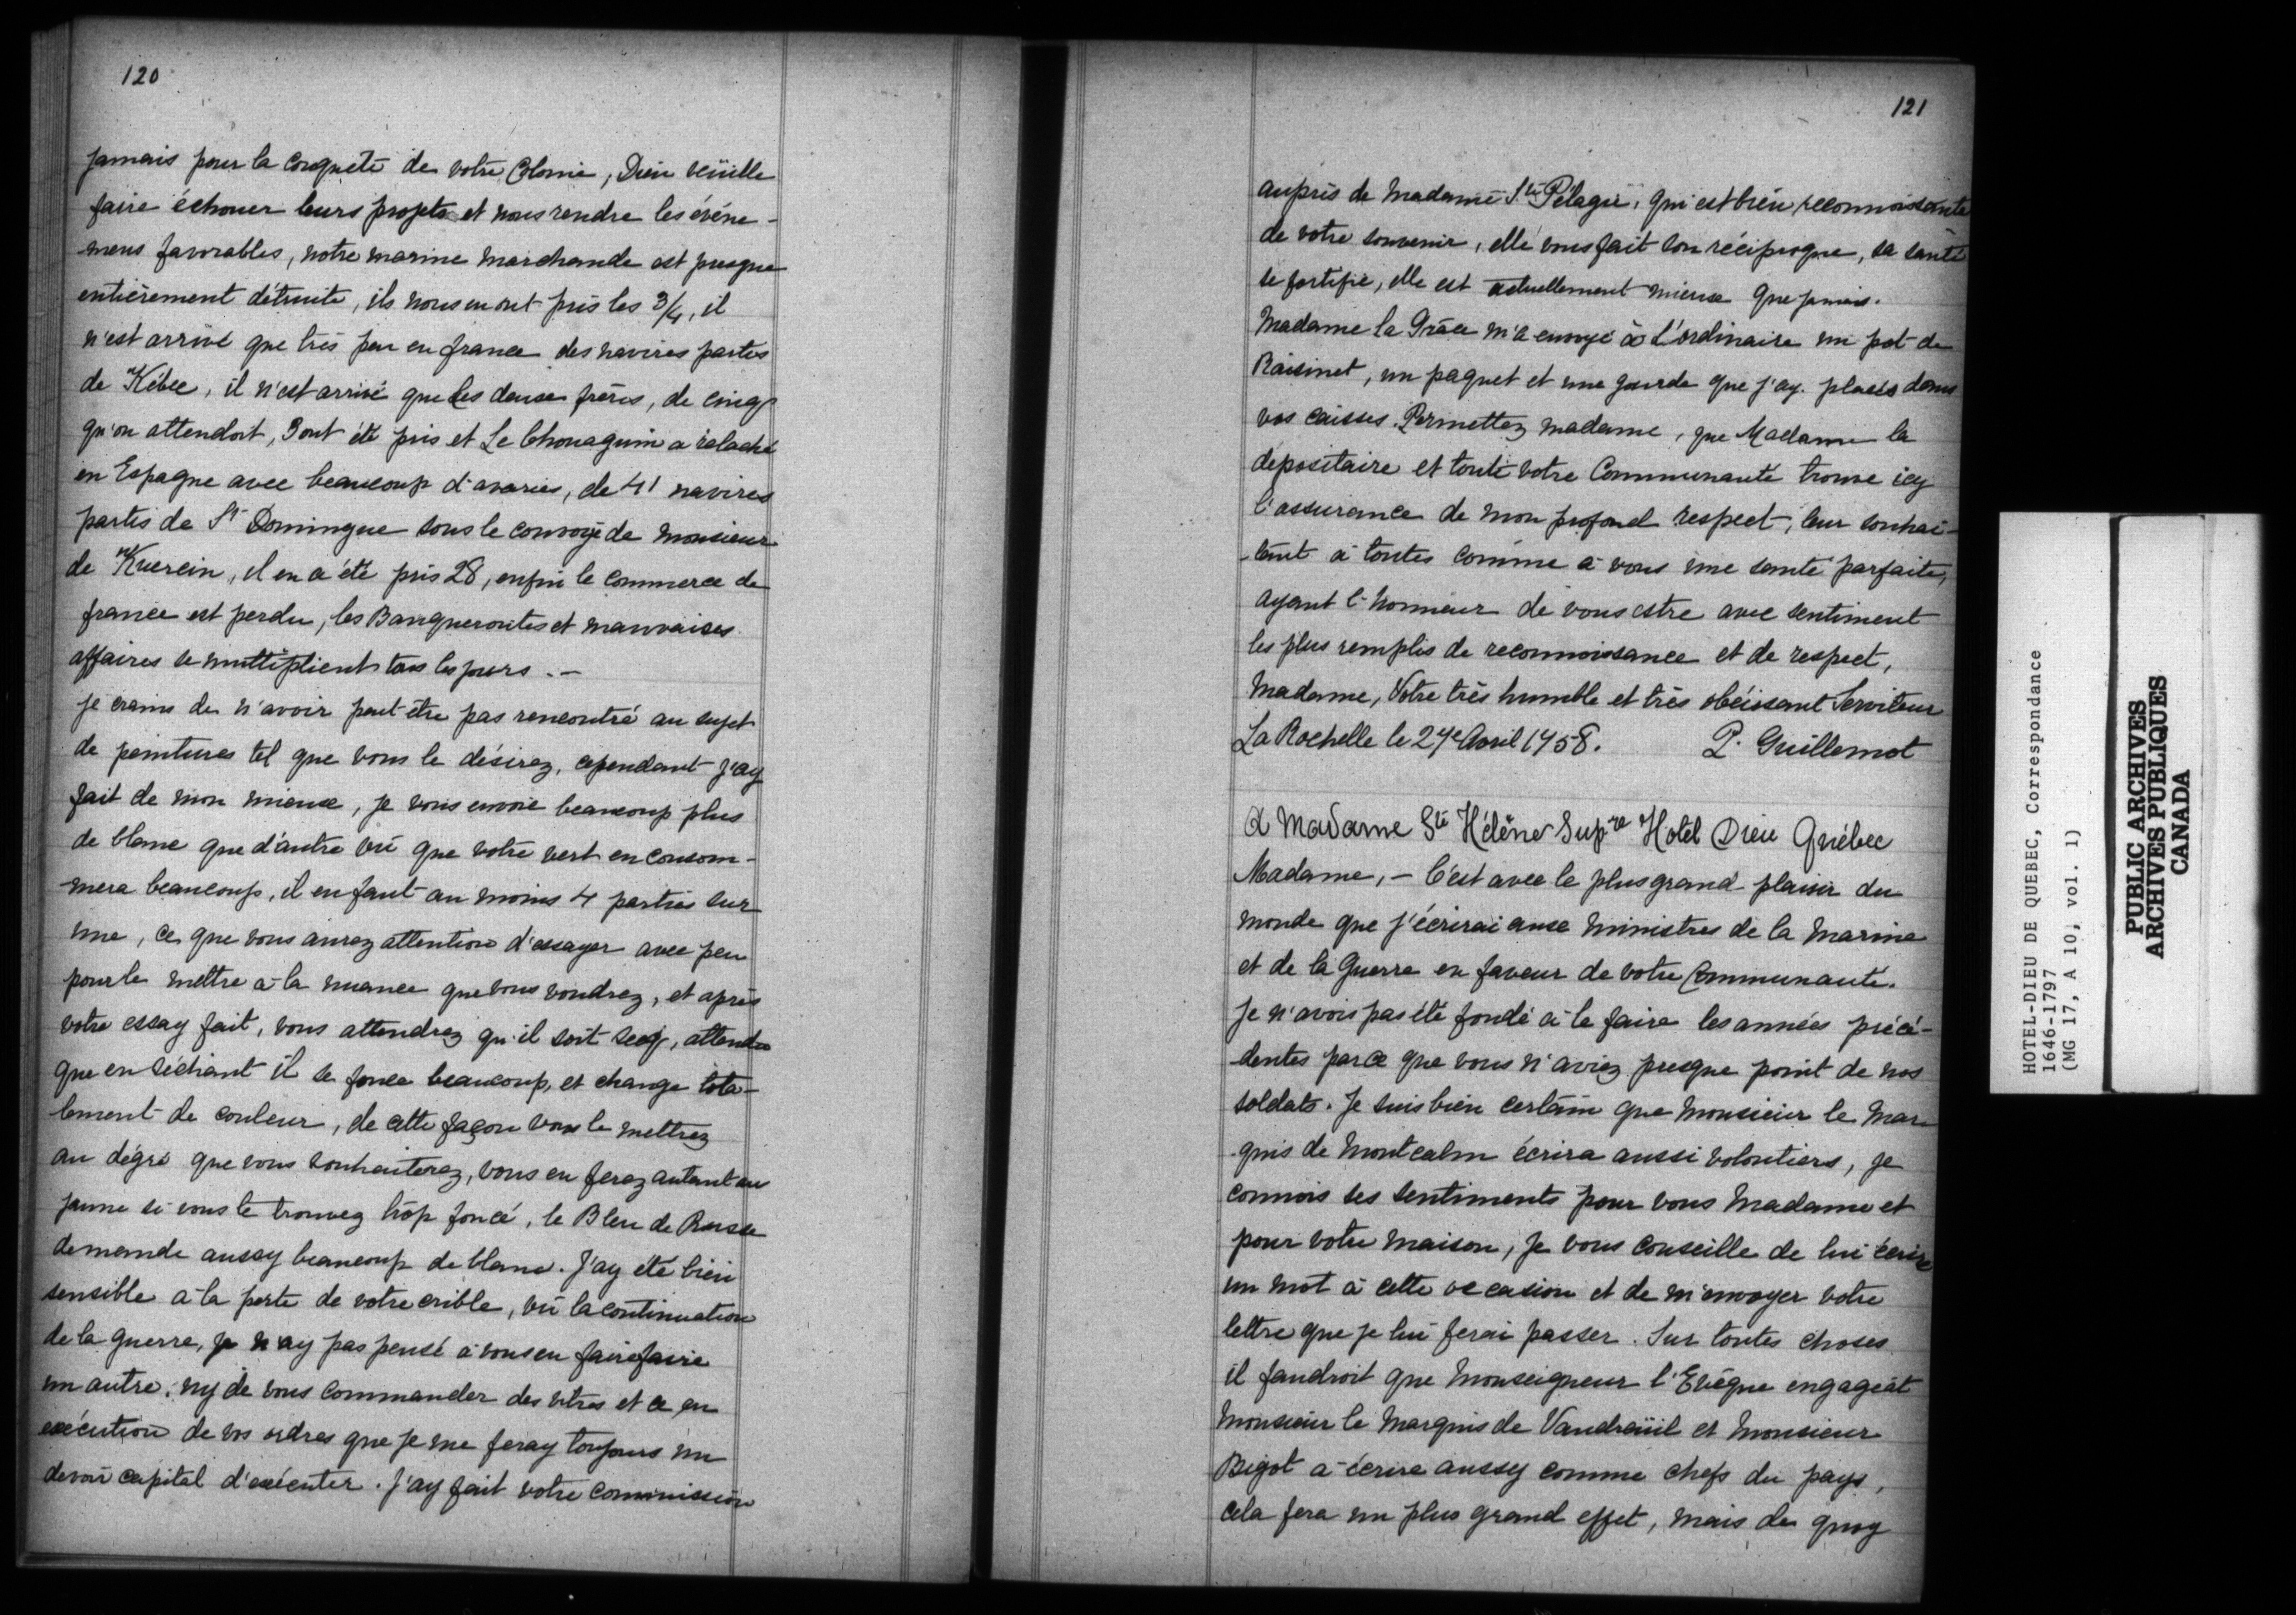 120
jamais pour la conquête de votre Colonie, Dieu veüille
faire échouer leurs projets et nous rendre les événe-
mens favorables, notre marine marchande est presque
entièrement détruite, ils nous en ont pris les 3/4, il
n'est arrivé que très peu en france des navires partis
de Kébec, il n'est arrivé que les deux frères, de cinq
qu'on attendoit, 3 ont été pris et Le Chouaguin a relaché
en Espagne avec beaucoup d'avaries, de 41 navires
partis de St Domingue sous le convoye de monsieur
de Kuercin, il en a été pris 28, enfin le commerce de
france est perdu, les Banqueroutes et mauvaises
affaires se multiplient tous les jours. -
je crains de n'avoir peut-être pas rencontré au sujet
de peintures tel que vous le désirez, cependant j'ay
fait de mon mieux, je vous envoie beaucoup plus
de blanc que d'autre vû que votre vert en consom-
mera beaucoup, il en faut au moins 4 parties sur
une, ce que vous aurez attention d'essayer avec peu
pour le mettre à la nuance que vous voudrez, et après
votre essay fait, vous attendrez qu'il soit secq, attendu
que en séchant il se fonce beaucoup, et change tota-
lement de couleur, de cette façon vous le mettrez
au dégré que vous souhaiterez, vous en ferez autant au
jaune si vous le trouvez trop foncé, le Bleu de Prusse
demande aussy beaucoup de blanc. J'ay été bien
sensible à la perte de votre crible, vû la continuation
de la guerre, je n'ay pas pensé à vous en faire faire
un autre, ny de vous commander des vitres et ce en
exécution de vos ordres que je me feray toujours un
devoir capital d'exécuter. J'ay fait votre commission
121
auprès de Madame Ste Pélagie, qui est bien reconnoissante
de votre souvenir, elle vous fait son réciproque, sa santé
se fortifie, elle est actuellement mieux que jamais.
Madame la Grâce m'a envoyé à L'ordinaire un pot de
Raisinet, un paquet et une gourde que j'ay placés dans
vos caisses. Permettez madame, que Madame la
dépositaire et toute votre Communauté trouve icy
l'assurance de mon profond respect, leur souhai-
tant à toutes comme à vous une santé parfaite,
ayant l'honneur de vous estre avec sentiment
les plus remplis de reconnoissance et de respect,
Madame, Votre très humble et très obéissant Serviteur
La Rochelle le 27e Avril 1758. P. Guillemot
A Madame Ste Hélène Supre Hotel Dieu Québec
Madame, - C'est avec le plus grand plaisir du
monde que j'écrirai aux ministres de la Marine
et de la Guerre en faveur de votre Communauté.
Je n'avois pas été fondé à le faire les années précé-
dentes parce que vous n'aviez presque point de nos
soldats. Je suis bien certain que Monsieur le Mar-
quis de Montcalm écrira aussi volontiers, je
connois ses sentiments pour vous Madame et
pour votre maison, je vous conseille de lui écrire
un mot à cette occasion et de m'envoyer votre
lettre que je lui ferai passer. Sur toutes choses
il faudroit que Monseigneur l'Evêque engageât
Monsieur le Marquis de Vaudreüil et Monsieur
Bigot à écrire aussy comme chefs du pays,
cela fera un plus grand effet, mais de quoy
HOTEL-DIEU DE QUEBEC, Correspondance
1646-1797
(MG 17, A 10, vol. 1)
PUBLIC ARCHIVES
ARCHIVES PUBLIQUES
CANADA